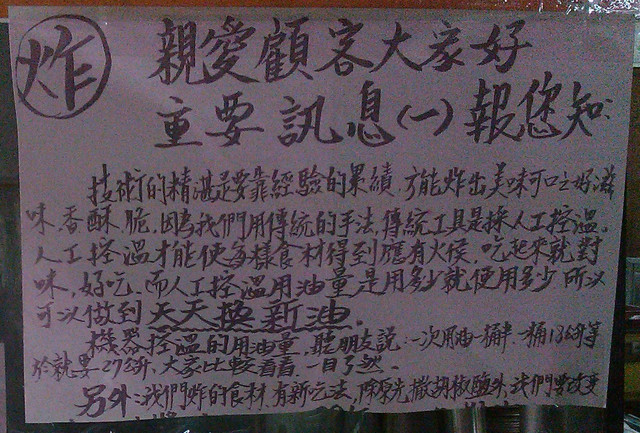 炸 親愛顧客大家好
重要訊息(一)報您知
技術的精湛是要靠經驗的累積,才能炸出美味可口之好滋
味,香酥脆,因為我們用傳統的手法,傳統工具是採人工控溫。
人工控溫才能使每樣食材得到應有火侯,吃起來就對
味,好吃,而人工控溫用油量是用多少就使用多少,所以
可以做到天天換新油。
機器控溫的用油量,聽朋友說:一次用油一桶半,一桶18公升等
於就要27公升,大家比較看看,一目了然。
另外:我們炸的食材,有新吃法,除原先撒胡椒鹽外,我們要改變